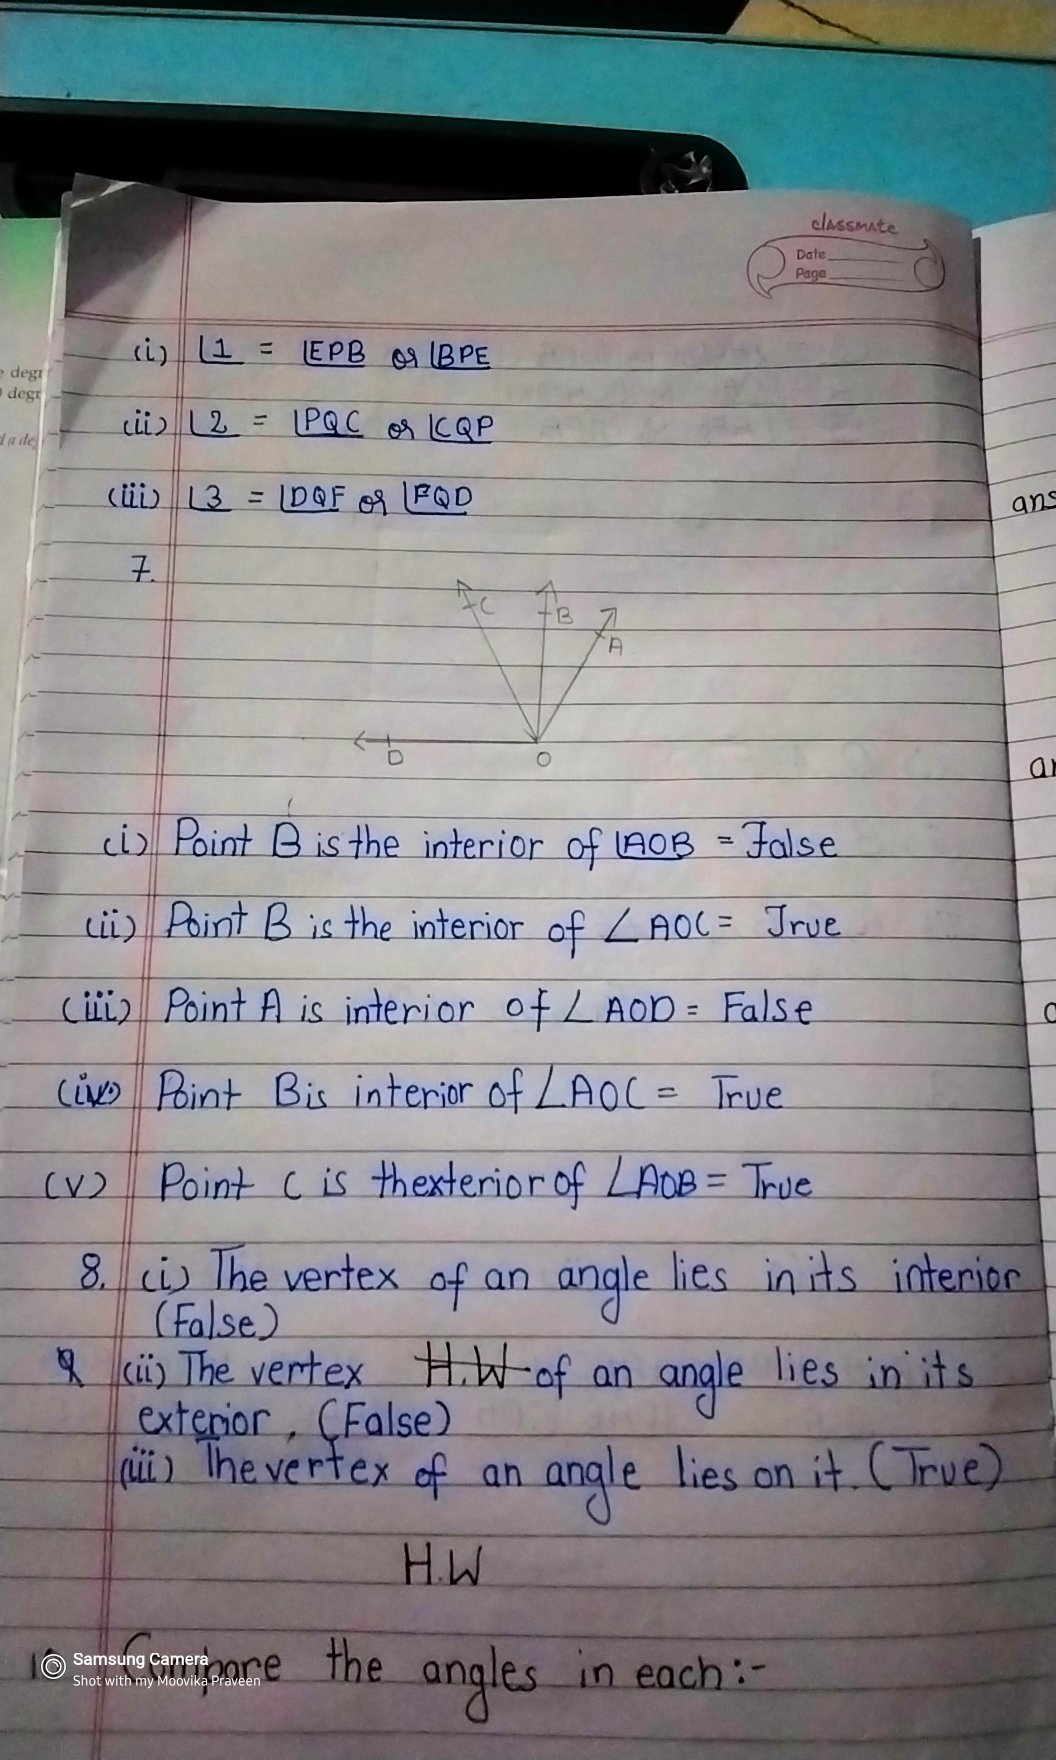 classmate
Date
Page
e degr
degr
(i) ∟1 = ∟EPB or ∟BPE
(ii) ∟2 = ∟PQC or ∟CQP
(iii) ∟3 = ∟DQF or ∟FQD
ans
7.
C
B
A
D
O
(i) Point B is the interior of ∟AOB = False
(ii) Point B is the interior of ∠AOC = True
(iii) Point A is interior of ∠AOD = False
(iv) Point B is interior of ∠AOC = True
(v) Point C is thexterior of ∠AOB = True
8. (i) The vertex of an angle lies in its interior
(False)
(ii) The vertex H.W of an angle lies in its
exterior, (False)
(iii) The vertex of an angle lies on it. (True)
H.W
Compare the angles in each:-
Samsung Camera
Shot with my Moovika Praveen